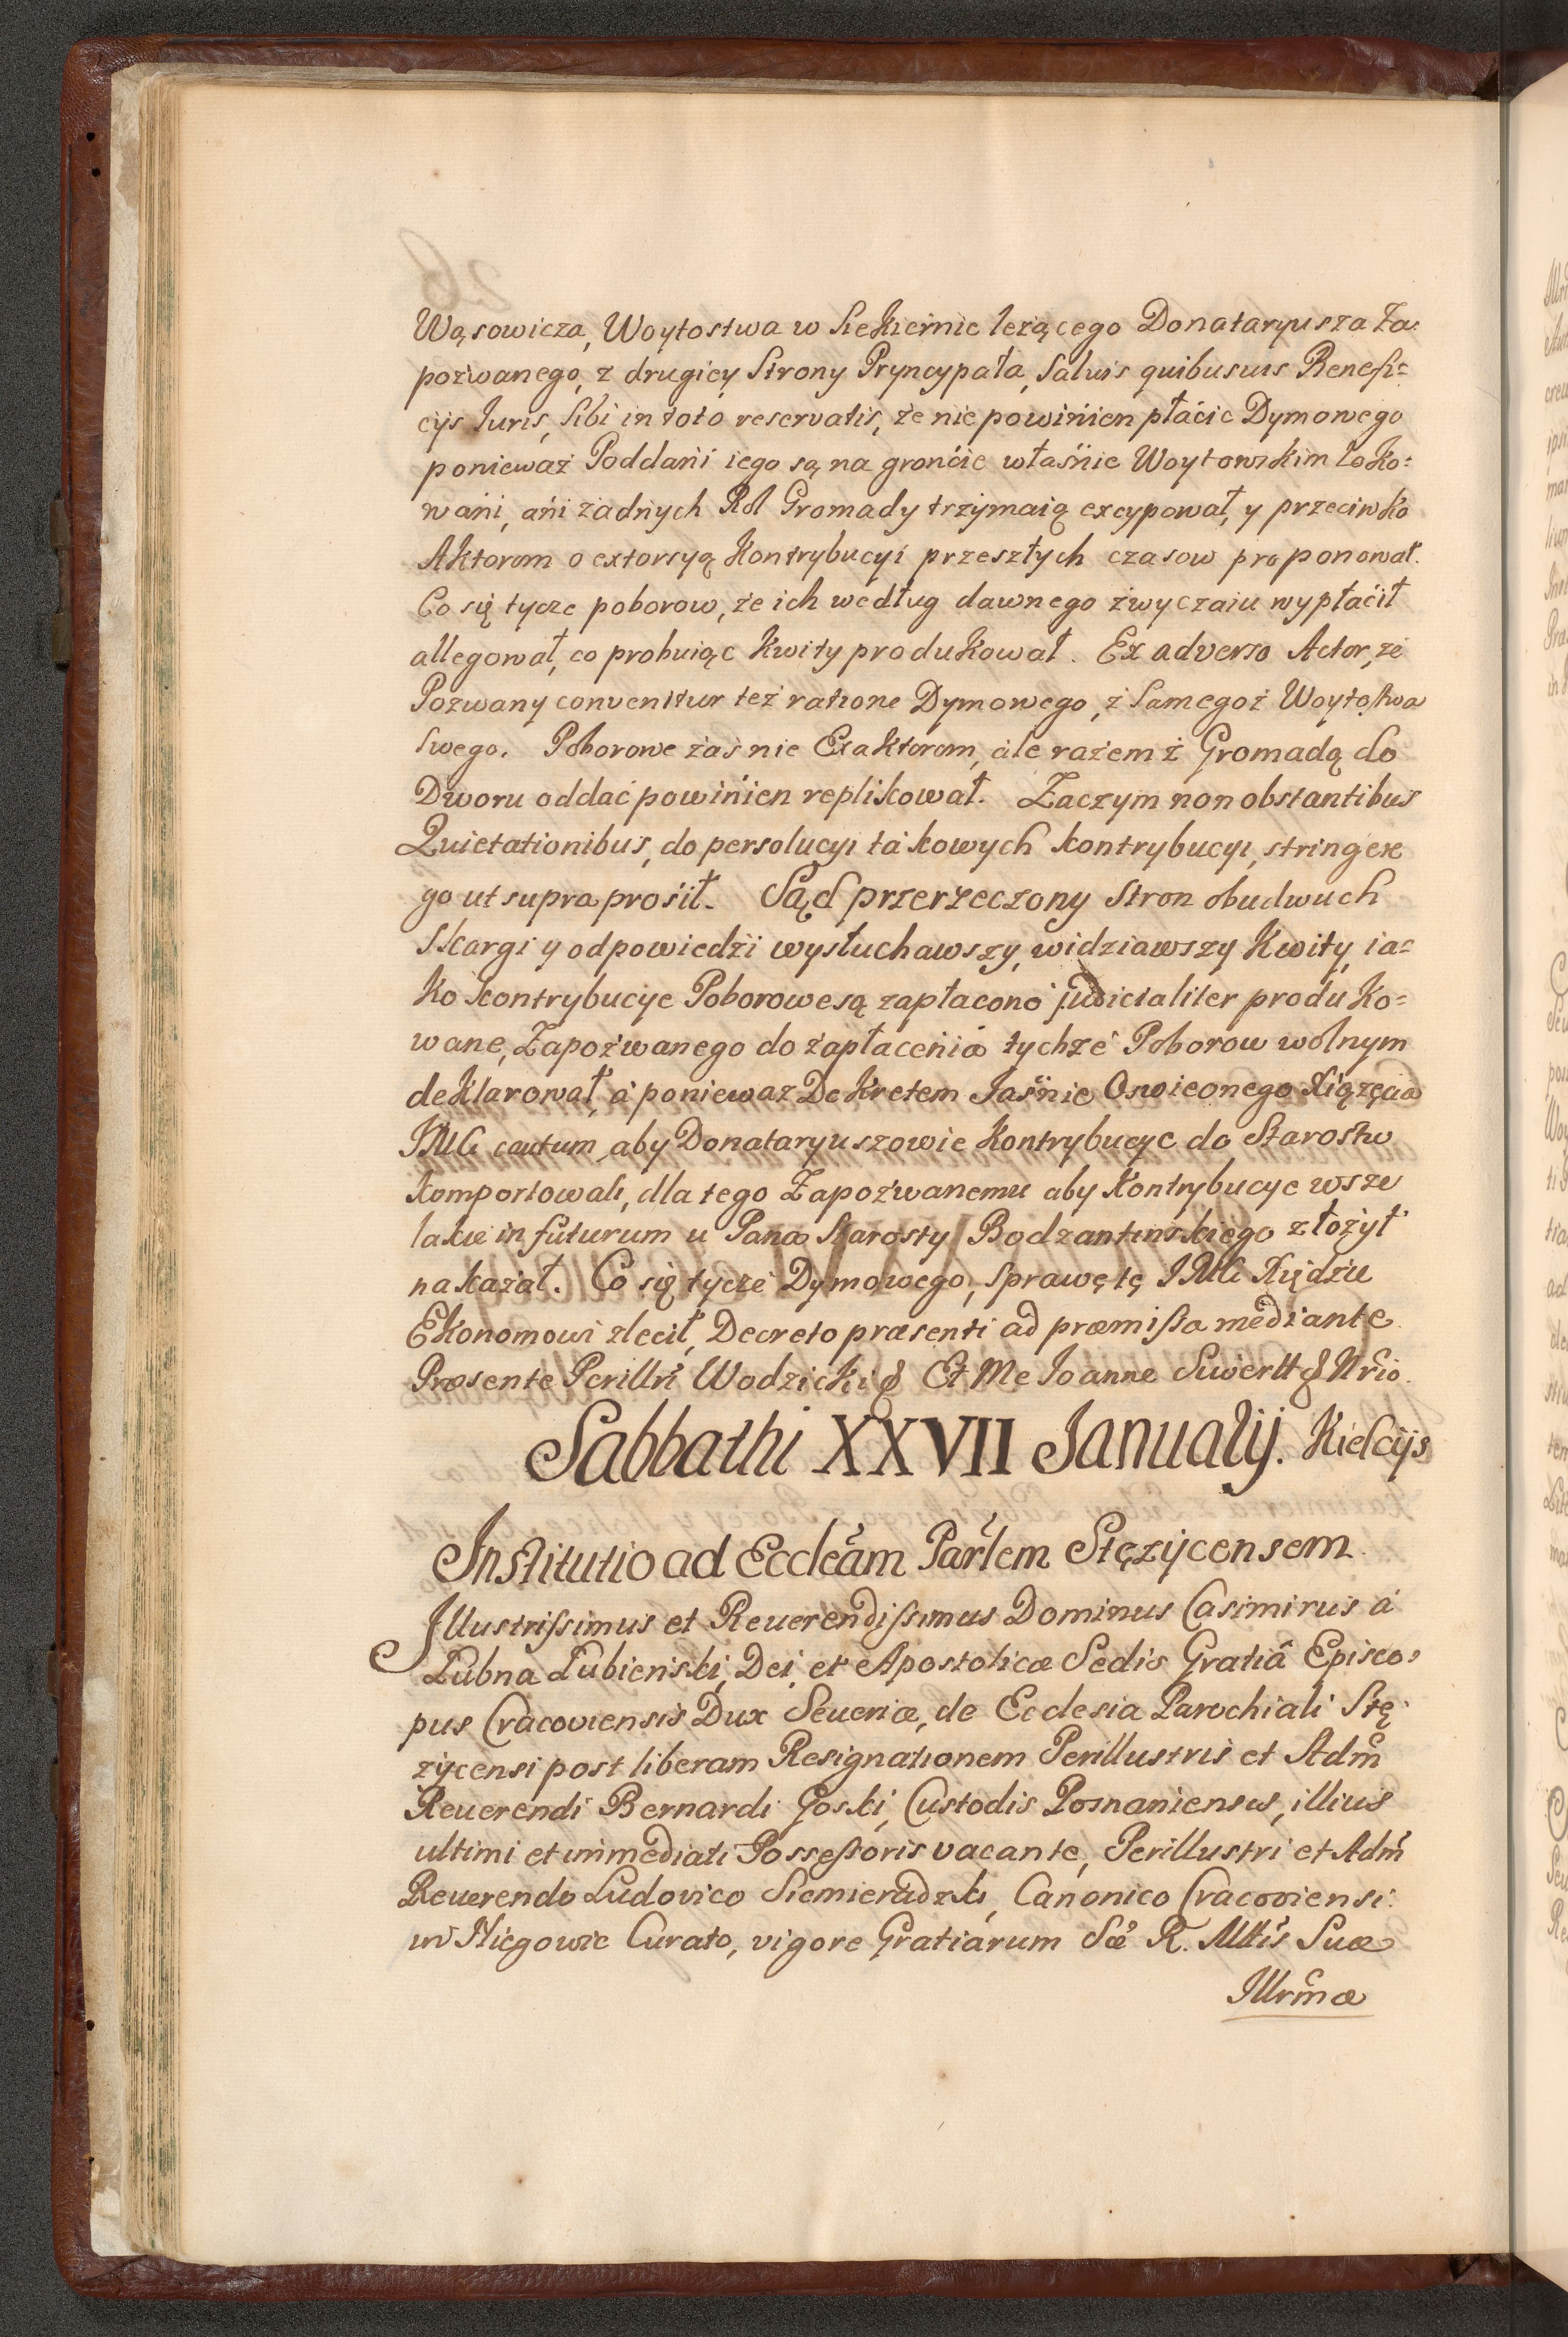 Wąsowicza, Woytostwa w Siekiernie leżącego Donataryusza Za-
pozwanego, z drugiey Strony Pryncypała, Salvis quibusvis Benefi=
cijs Iuris, Sibi in toto reservatis, że nie powinien płacic Dymowego
ponieważ Poddani iego są na gronćie własnie Woytowskim loko=
wani, ani żadnych Rol Gromady trzymaią excypował, y przeciwko
Aktorom o extorsyą Kontrybucyi przeszłych czasow proponował.
Co się tycze poborow, że ich według dawnego zwyczaiu wypłacił
allegował, co probuiąc Kwity produkował. Ex adverso Actor, że
Pozwany convenitur też ratione Dymowego, z Samegoż Woytostwa
Swego. Poborowe zaś nie Exaktorom, ale razem z Gromadą do
Dworu oddać powinien replikował. Zaczym non obstantibus
Quietationibus, do persolucyi takowych kontrybucyi, stringere
go ut supra prosił. Sąd przerzeczony Stron obudwuch
Skargi y odpowiedźi wysłuchawszy, widziawszy Kwity, ia=
ko kontrybucye Poborowe są zapłacono judicialiter produko=
wane, Zapozwanego do zapłacenia tychże Poborow wolnym
deklarował, a poniewaz Dekretem Jaśnie Oswieconego Xiążęcia
JMCi cautum, aby Donataryuszowie Kontrybucye do Starostw
komportowali, dla tego Zapozwanemu aby Kontrybucye wsze
lakie in futurum u Pana Starosty Bodzantinskiego złożył
nakazał. Co się tycze Dymowego, Sprawę tę JMCi Xiędzu
Ekonomowi zlecił, Decreto præsenti ad præmissa mediante
Præsente Perillri Wodzicki & Et Me Ioanne Suwertt & Nrio.
Sabbathi XXVII Ianuarij. Kielcijs
Institutio ad Eccleam Parlem Stężycensem
Illustrissimus et Reuerendissimus Dominus Casimirus á
Łubna Łubienski, Dei et Apostolicæ Sedis Gratiâ Episco=
pus Cracoviensis Dux Severiæ, de Ecclesia Parochiali Stę
zÿcensi post liberam Resignationem Perillustris et Adm
Reuerendi Bernardi Goski, Custodis Posnaniensis, illius
ultimi et immediati Possessoris vacante, Perillustri et Adm
Reuerendo Ludovico Siemieradzki, Canonico Cracoviensi
in Niegowic Curato, vigore Gratiarum Sæ R. Mttis Suæ
Illrmæ